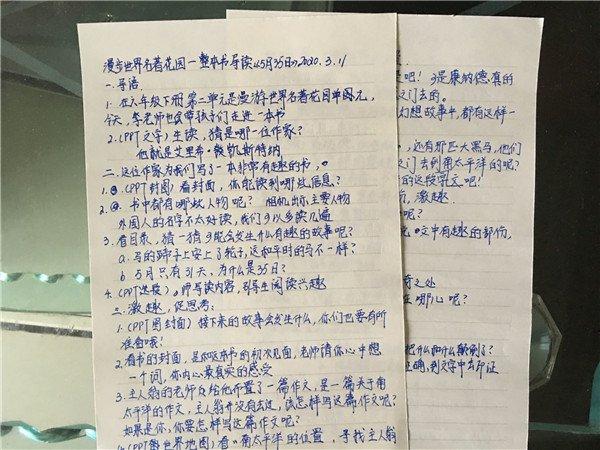 漫步世界名著花园—整本书导读《5月35日》2020.3.11
一.导语.
1.在六年级下册第二单元是漫游世界名著花园单元,
今天,李老师也会带孩子们走进一本书
2.(PPT文字)生读,猜是哪一位作家?
他就是艾里希·凯斯特纳
二.这位作家为我们写了一本非常有趣的书.
1.(PPT封面)看封面,你能读到哪些信息?
2.书中都有哪些人物呢?相机出示主要人物
外国人的名字不太好读,我们可以多读几遍
3.看目录,猜一猜可能会发生什么有趣的故事呢?
a.马的蹄子上安上了轮子,这和平时的马不一样?
b.5月只有31天,为什么是35日?
4.(PPT选段).师写读内容,引导生阅读兴趣
三.激趣,促思考:
1.(PPT图封面)接下来的故事会发生什么,你们也要有所
准备哦!
2.看书的封面,是和这本书的初次见面,老师请你心中想
一个词,你内心最真实的感受
3.主人翁的老师反给他布置了一篇作文,是一篇关于南
太平洋的作文,主人翁并没有去过,该怎样写这篇作文呢?
如果是你,你要怎样写这篇作文呢?
世界地图)看"南太平洋"的位置,寻找主人翁
是吧!可是康纳德真的
之门去的.
幻想故事中,都有这样一
,还有那匹大黑马,他们
之门去到南太平洋的呢?
的这段弯文吧!
,激趣.
呢?
文中有趣的部份,
奇之处
在哪儿呢?
把什么和什么颠倒了?
正确,到文字中去印证